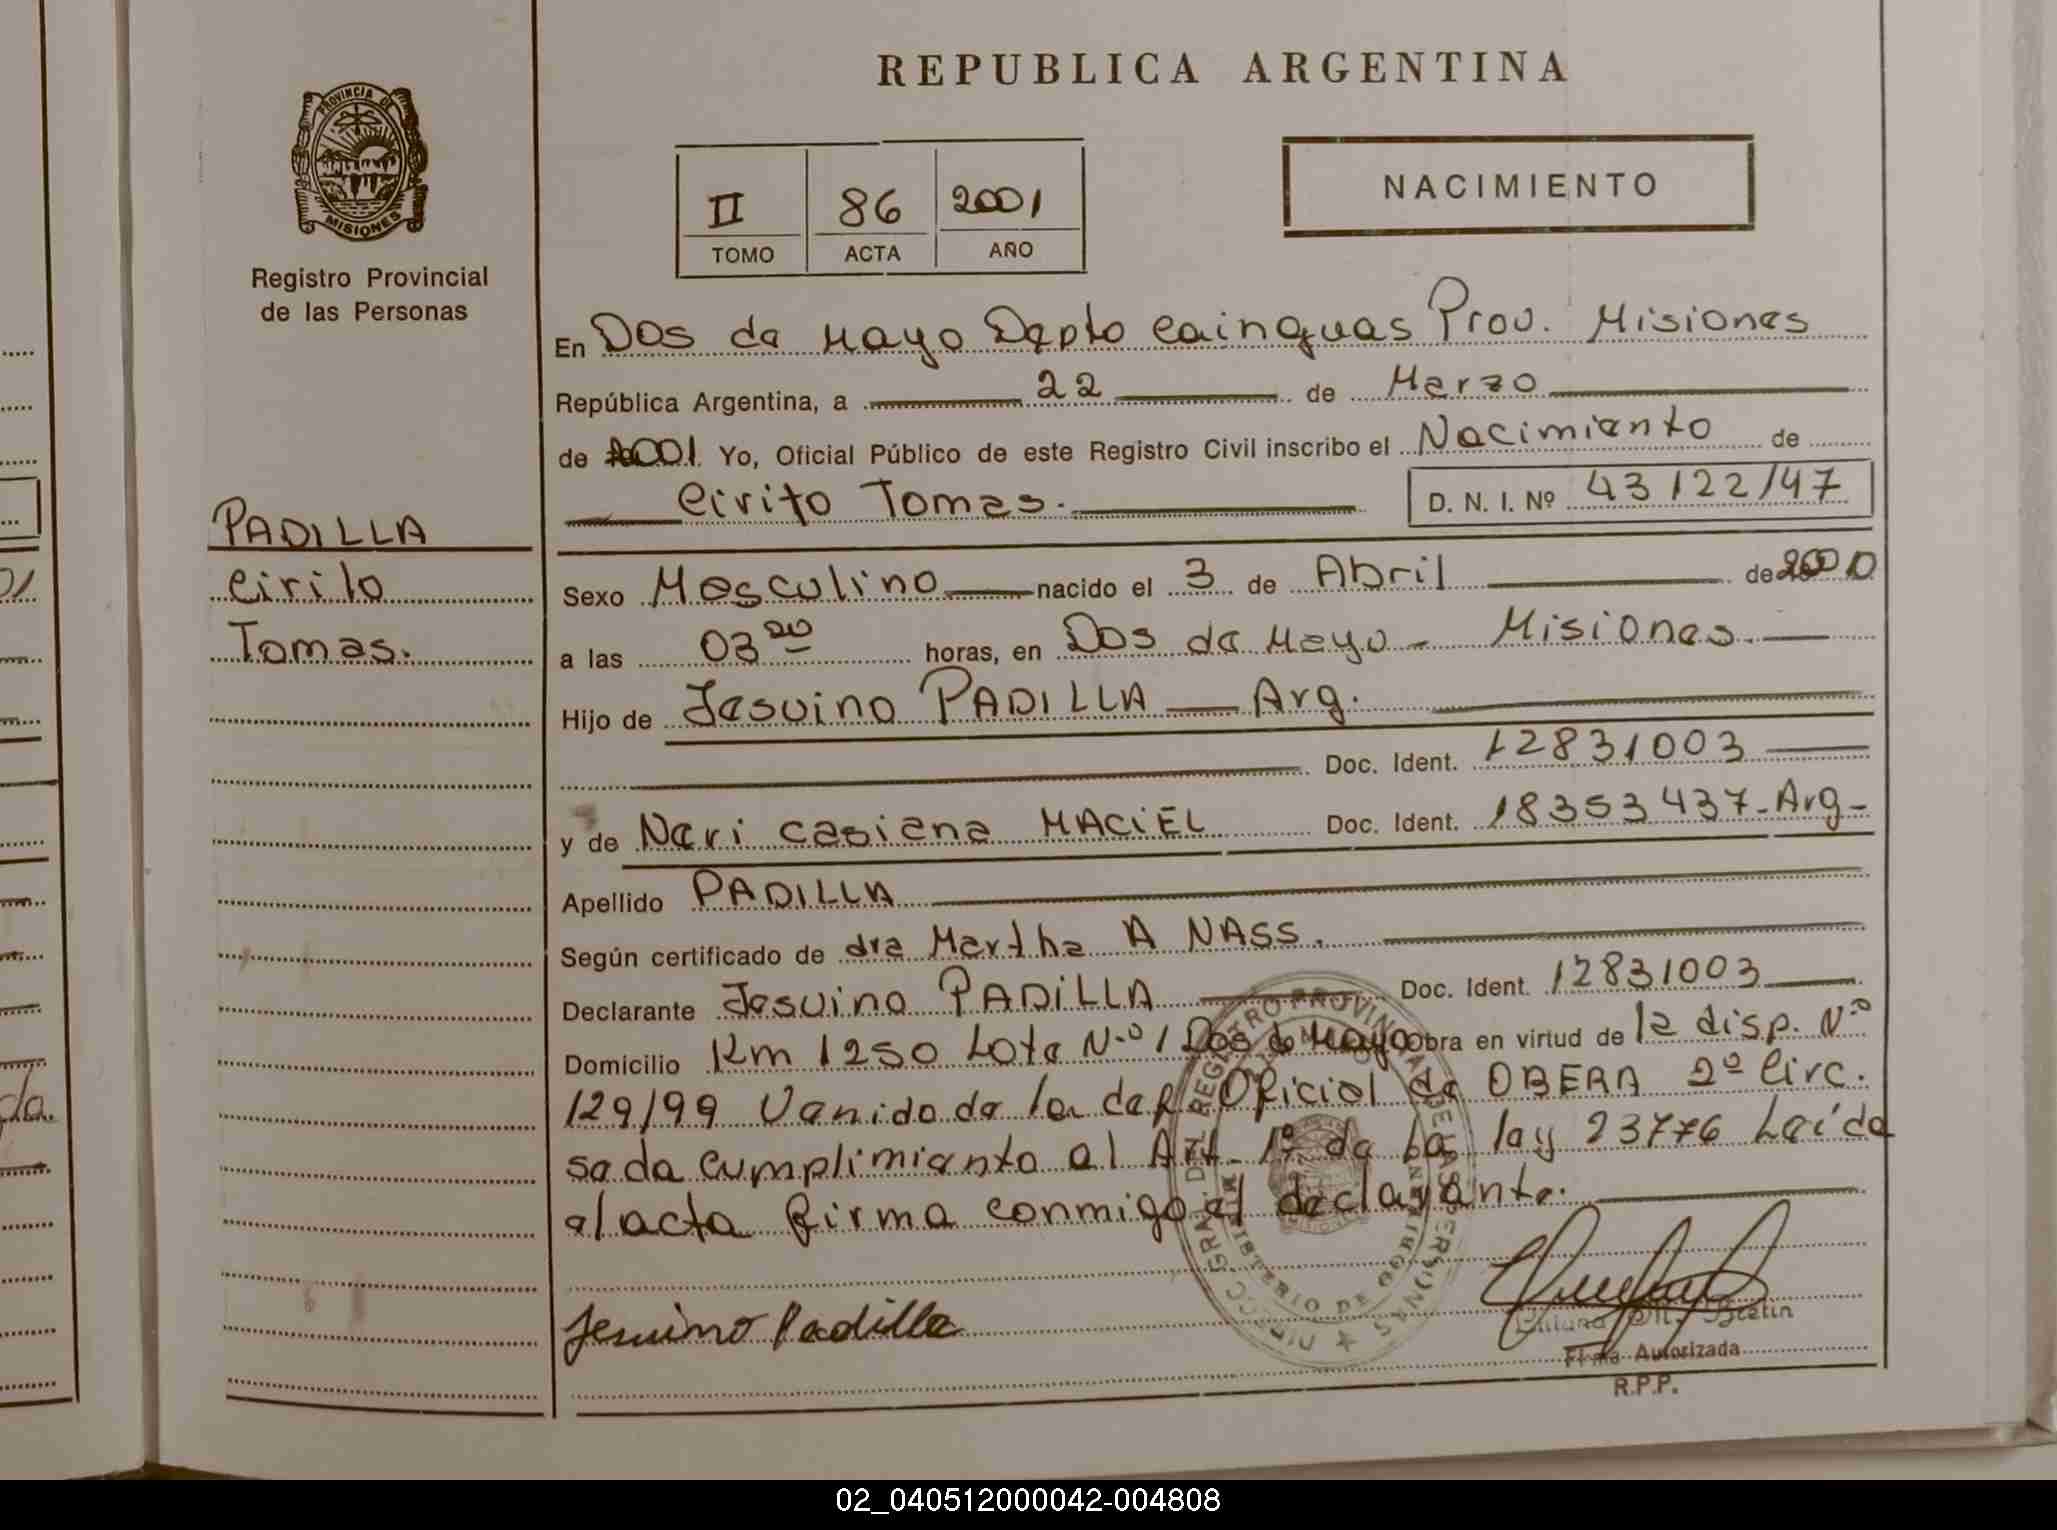 REPUBLICA ARGENTINA
PROVINCIA DE
MISIONES
Registro Provincial
de las Personas
II 86 2001
TOMO ACTA AÑO
NACIMIENTO
PADILLA
Cirilo
Tomas.
En Dos de Mayo Depto Cainguas Prov. Misiones
República Argentina, a 22 de Marzo
de 2001 Yo, Oficial Público de este Registro Civil inscribo el Nacimiento de
Cirilo Tomas. D. N. I. Nº 43122147
Sexo Masculino nacido el 3 de Abril de 2000
a las 03 20 horas, en Dos de Mayo - Misiones.
Hijo de Jesuino PADILLA - Arg.
Doc. Ident. 12831003
y de Neri Casiana MACIEL Doc. Ident. 18353437-Arg-
Apellido PADILLA
Según certificado de dra Martha A NASS.
Declarante Jesuino PADILLA Doc. Ident. 12831003
Domicilio Km 1250 Lote N.º 1 Dos de Mayo Obra en virtud de la disp. Nº
129/99 Venido de la del. Oficial de OBERA 2º Circ.
se da cumplimiento al Art. 1º de la ley 23776 Leída
el acta firma conmigo el declarante.
Jesuino Padilla
Firma Autorizada
R.P.P.
02_040512000042-004808